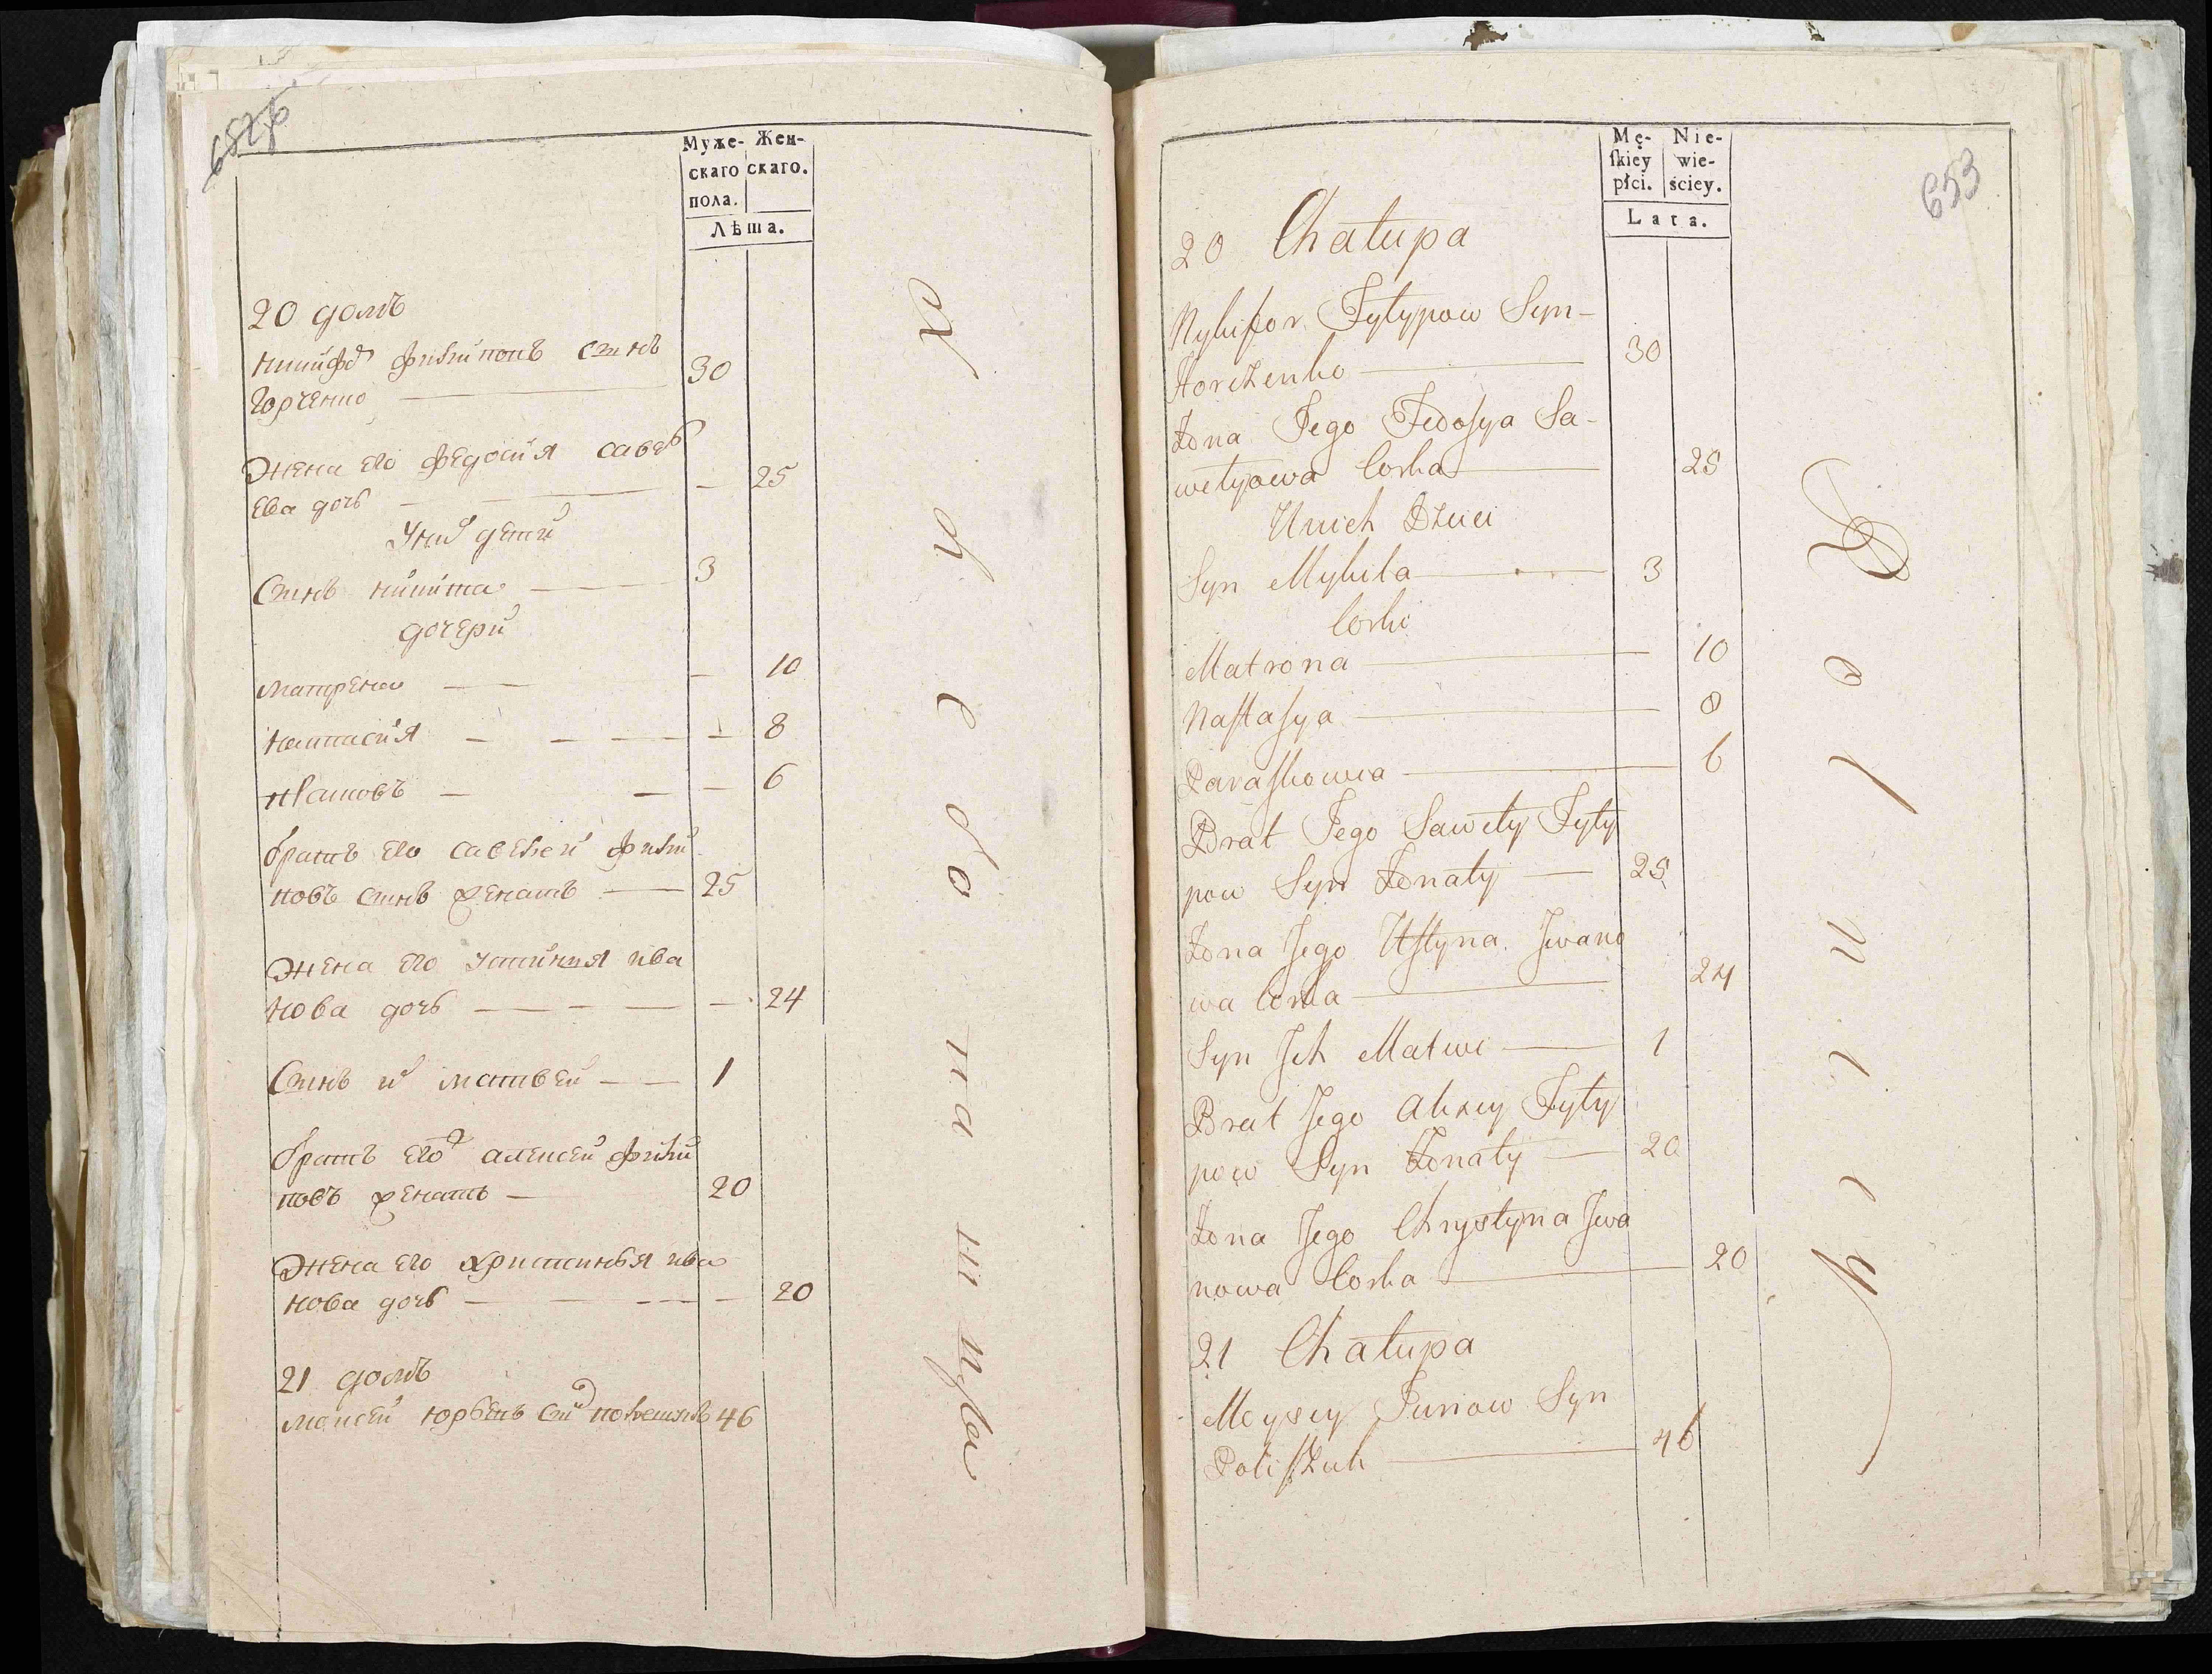 652об
Муже- Жен-
скаго скаго.
пола.
Лѣта.
20 домъ
Никифоръ Филиповъ сынъ
Горченко 30
Жена его Федосия савель
ева дочь 25
У них дети
Сынъ никита 3
дочери
матрена 10
настасия 8
6
братъ его савелей Фили
повъ сынъ женатъ 25
Жена его устиния ива
нова дочь 24
Сынъ их матвей 1
братъ его алексей Фили
повъ женатъ 20
Жена его христинья ива
нова дочь 20
21 домъ
моисей юрьевъ сын полешукъ 46
653
Mę- Nie-
ſkiey wie-
płci. ściey.
Lata.
20 Chałupa
Nykifor Fyłypow Syn
Horczenko 30
Zona Jego Fedoſya Sa-
wełyowa Corka 25
U nich Dzieci
Syn Mykita 3
Corki
Matrona 10
Naſtaſya 8
Paraſkowia 6
Brat Jego Saweły Fyły
pow Syn Zonaty 25
Zona Jego Uſtyna Jwano
wa Corka 24
Syn Jch Matwi 1
Brat Jego Alexey Fyły
pow Syn Zonaty 20
Zona Jego Chrystyna Jwa
nowa Corka 20
21 Chałupa
Moysey Juriow Syn
Poliſzuk 46